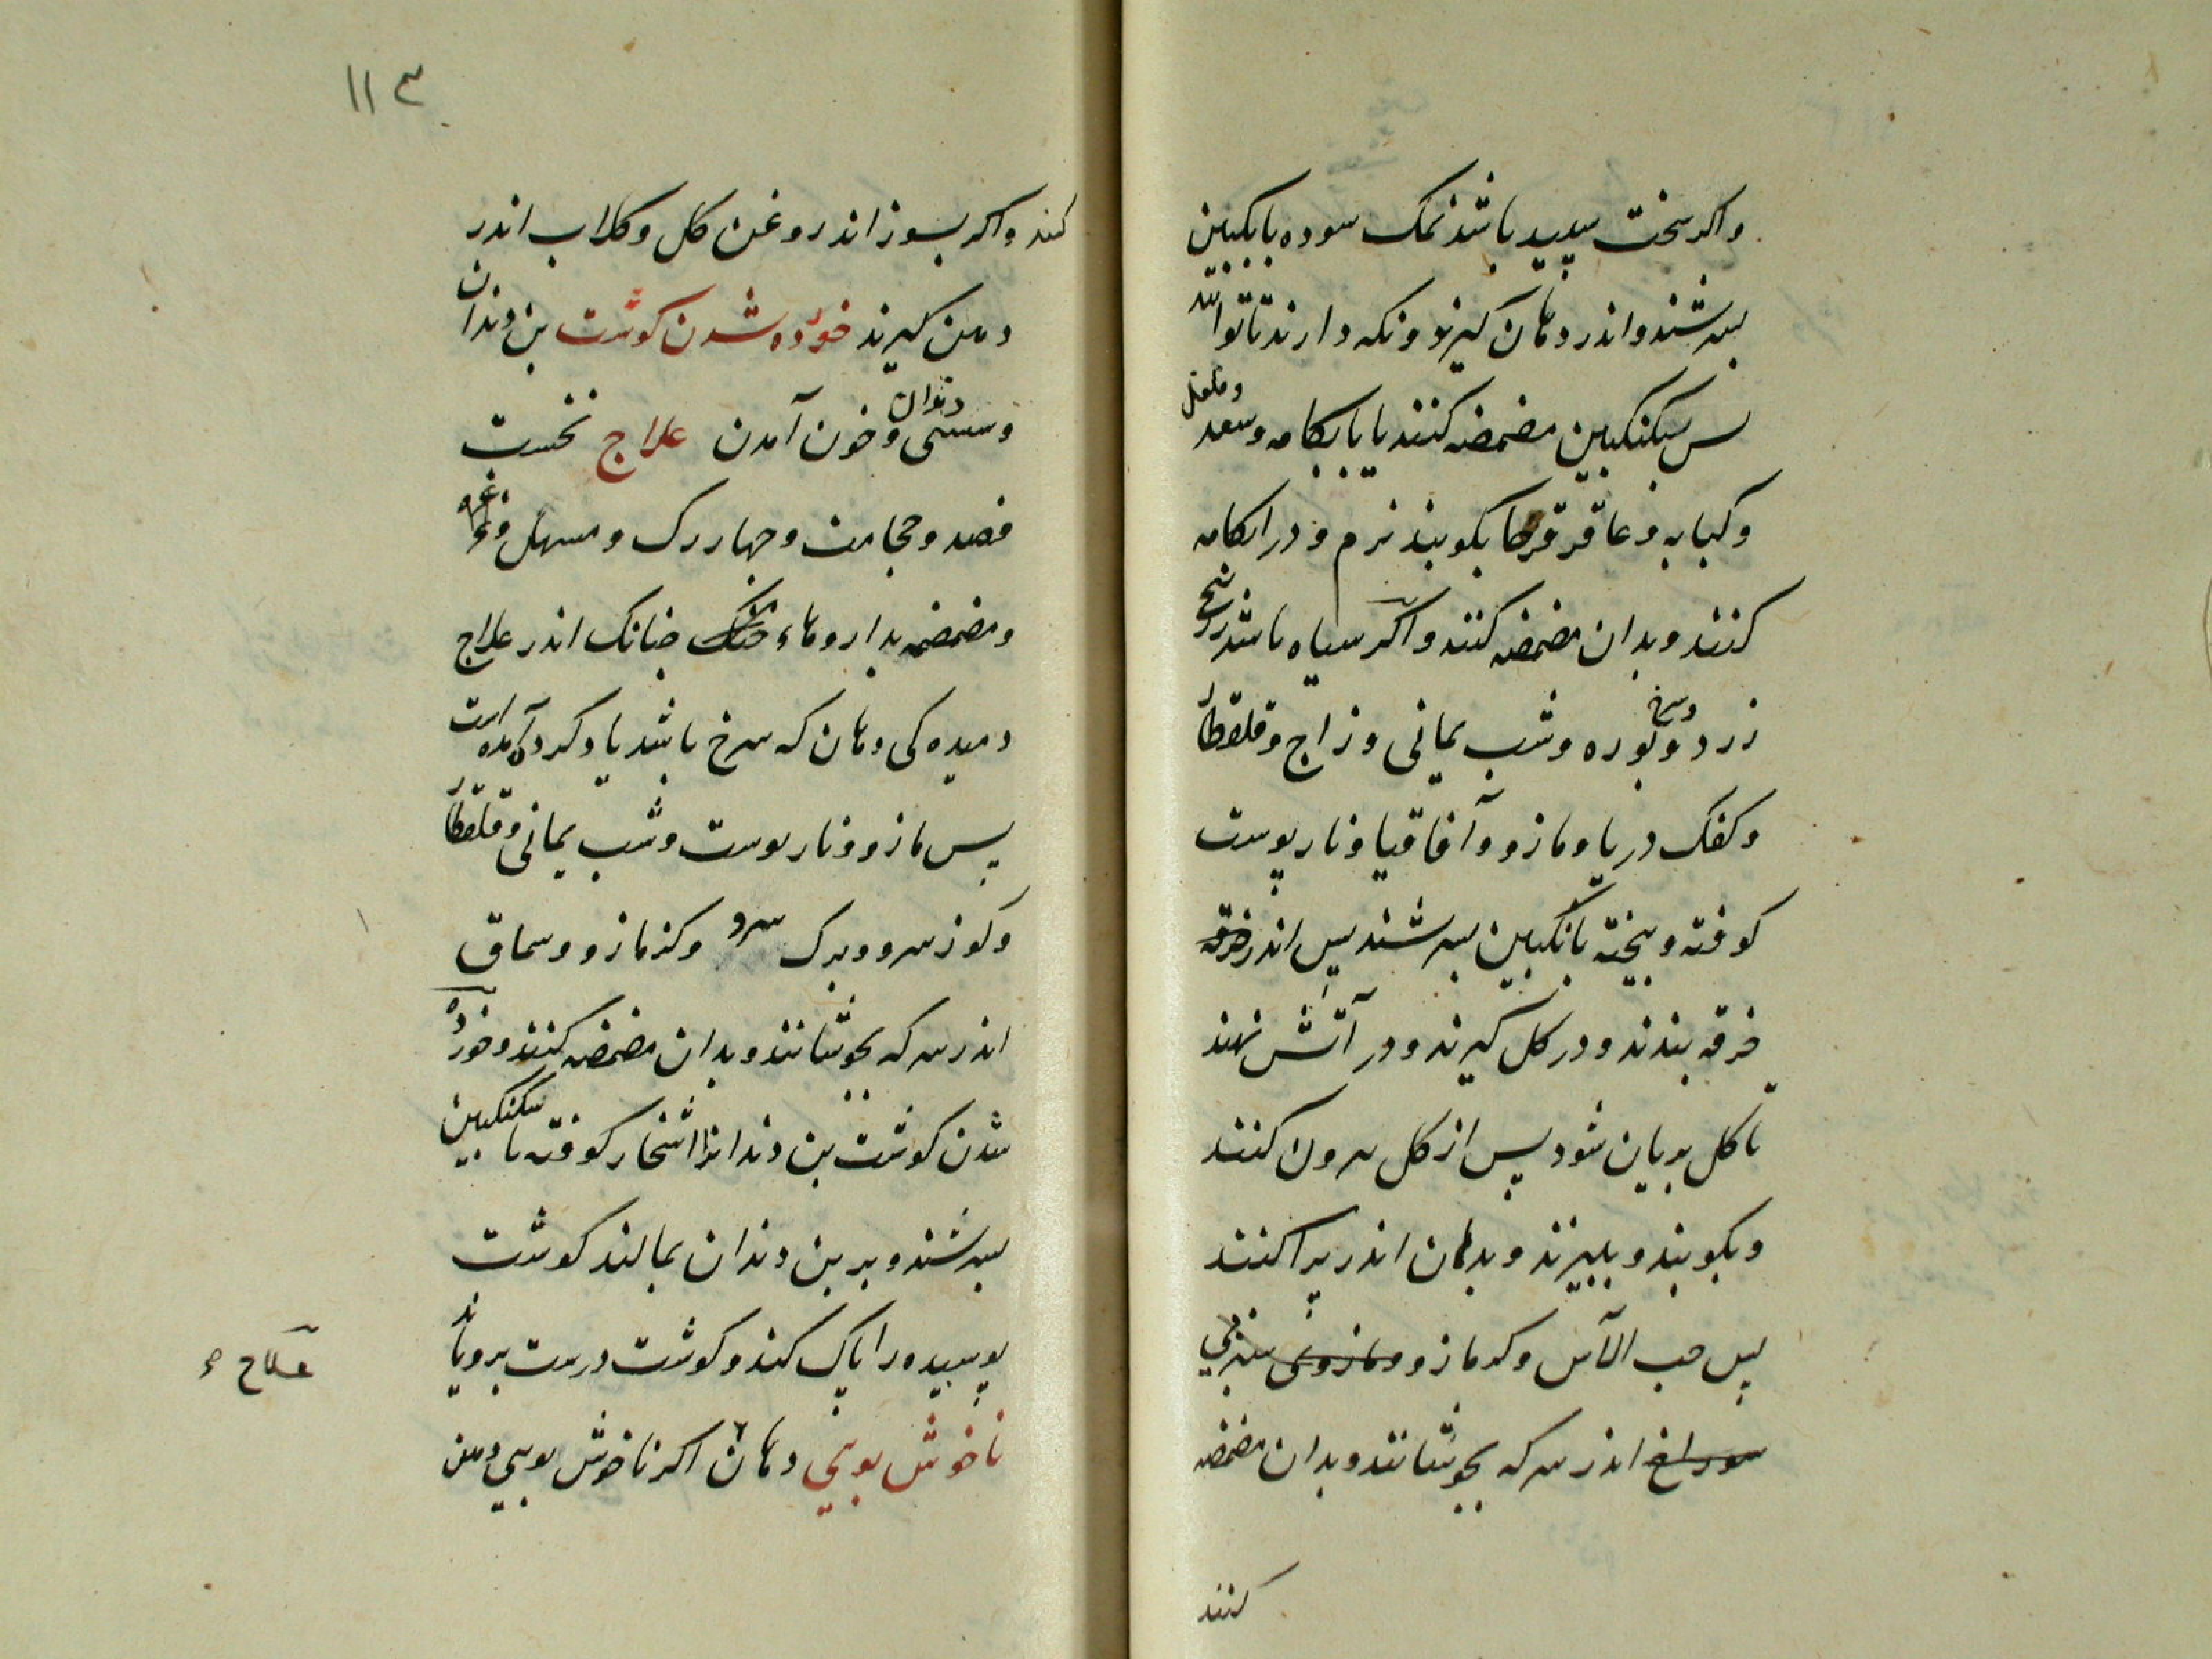 واکر سخت سپید باشد نمک سوده بانکبین
بسرشند واندر دهان کیرند ونکه دارند تا توانند
پس بسکنکبین مضمضه کنند یا بابکامه وسعد وفلفل
وکبابه وعاقرقرحا بکوبند نرم ودر ابکامه
کنند وبدان مضمضه کنند واکر سیاه باشد زرنیخ
زرد وسرخ وبوره وشب یمانی وزاج وقلقطار
وکفک دریا ومازو وآقاقیا ونارپوست
کوفته وبیخته بانکبین بسرشند پس اندر خرقه
خرقه بندند ودر کل کیرند ودر آتش نهند
تا کل بریان شود پس از کل برون کنند
وبکوبند وببیزند وبدهان اندر پراکنند
پس حب الآس وکزمازو ومازوی سبز بی
سوراخ اندر سرکه بجوشانند وبدان مضمضه
کنند
۱۱۳
کنند واکر بسوزاند روغن کل وکلاب اندر
دهن کیرند خورده شدن کوشت بن دندان
وسستی دندان وخون آمدن علاج نخست
فصد وحجامت وچهاررک ومسهل وغرغره
ومضمضه بداروهاء خنک چنانک اندر علاج
دمیدکی دهان که سرخ باشد یاد کرده آمده است
پس مازو ونارپوست وشب یمانی وقلقطار
وکوز سرو وبرک سرو وکزمازو وسماق
اندر سرکه بجوشانند وبدان مضمضه کنند وخورده
شدن کوشت بن دندانرا اشخار کوفته با سکنکبین
بسرشند وبر بن دندان بمالند کوشت
پوسیده را پاک کند وکوشت درست برویاند
ناخوش بویی دهان اکر ناخوش بویی دهن
علاج